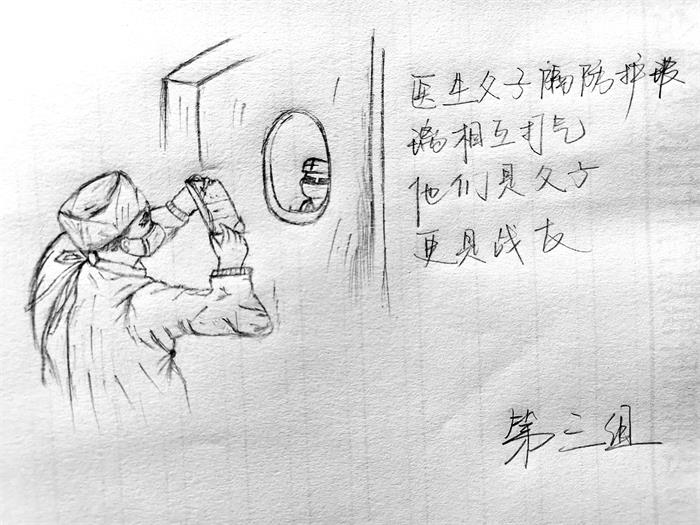 医生父子隔防护玻
璃相互打气
他们是父子
更是战友
第三组